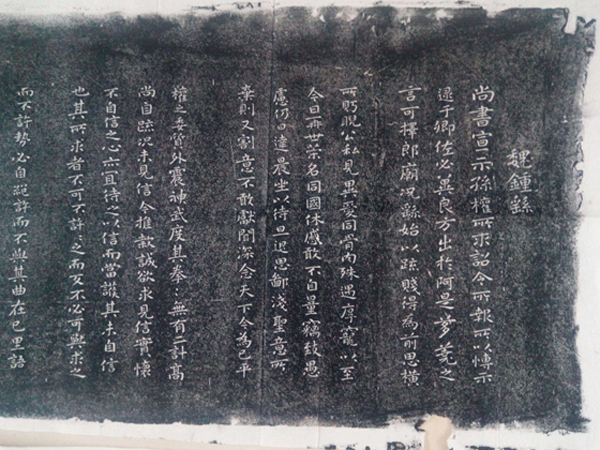 魏鍾繇
尚書宣示孫權所求詔令所報所以博示
逮于卿佐必冀良方出於阿是芻蕘之
言可擇郎廟況繇始以疏賤得為前恩橫
所盼睨公私見異愛同骨肉殊遇厚寵以至
今日再世榮名同國休慼敢不自量竊致愚
慮仍日達晨坐以待旦退思鄙淺聖意所
棄則又割意不敢獻聞深念天下今為已平
權之委質外震神武度其拳拳無有二計高
尚自疏況未見信今推款誠欲求見信實懷
不自信之心亦宜待之以信而當護其未自信
也其所求者不可不許許之而反不必可與求之
而不許勢必自絕許而不與其曲在己里語